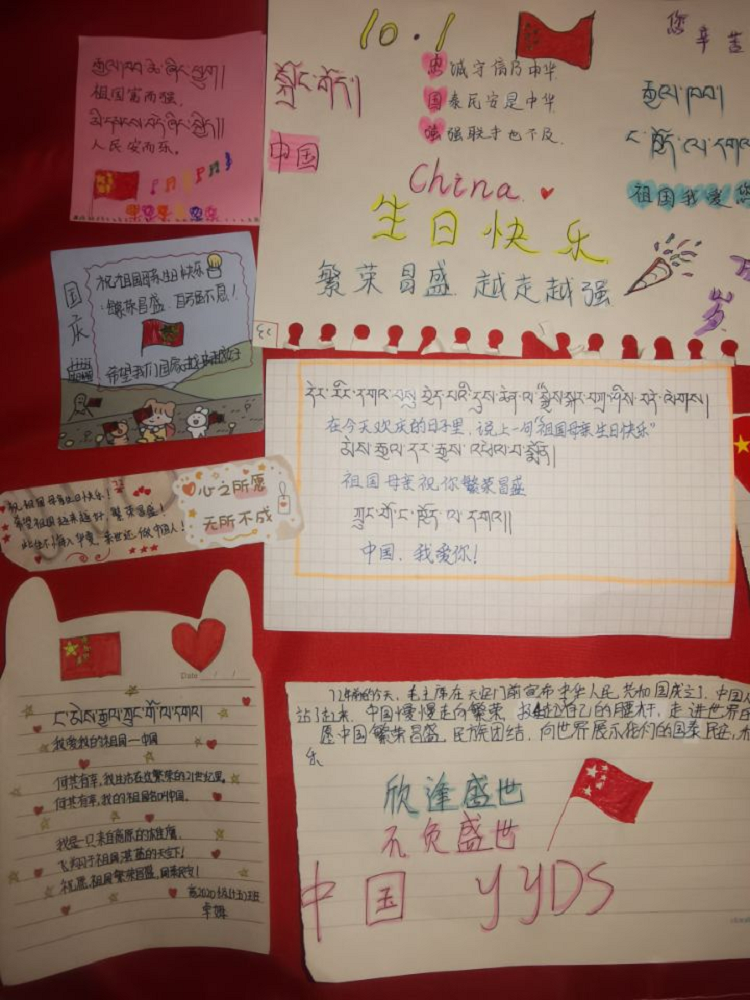 祖国富而强,
人民安而乐。
国庆
祝祖国母亲生日快乐
繁荣昌盛
希望我们国家
祝祖国母亲生日快乐!
希望祖国越来越好 繁荣昌盛!
此生不悔入华夏 来世还做中国人!
心之所愿
无所不成
Date / /
ང་མེས་རྒྱལ་ཀྲུང་གོ་ལ་དགའ།
我爱我的祖国—中国
何其有幸,我生活在这繁荣的21世纪里。
何其有幸,我的祖国名叫中国。
我是一只来自高原的雄鹰,
飞翔于祖国湛蓝的天空下!
祝愿祖国繁荣昌盛,国泰民安!
高2020级(十五)班
卓姆
10.1
您辛苦
忠诚守信乃中华
国泰民安是中华
强强联手也不及
中国
祖国我爱您
China
生日快乐
繁荣昌盛 越走越强
万岁
在今天欢庆的日子里,说上一句“祖国母亲生日快乐”
祖国母亲祝你繁荣昌盛
ཀྲུང་གོ་ང་ཁྱོད་ལ་དགའ།།
中国,我爱你!
72年前的今天,毛主席在天安门前宣布中华人民共和国成立了,中国人
站了起来,中国慢慢走向繁荣,挺起自己的腰杆,走进世界的
愿中国繁荣昌盛,民族团结,向世界展示我们的国泰民安,
乐
欣逢盛世
不负盛世
中国 YYDS